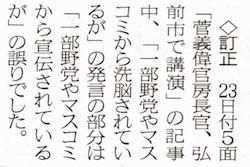 ◇訂正　23日付5面
「菅義偉官房長官、弘
前市で講演」の記事
中、「一部野党やマス
コミから洗脳されてい
るが」の発言の部分は
「一部野党やマスコミ
から宣伝されている
が」の誤りでした。